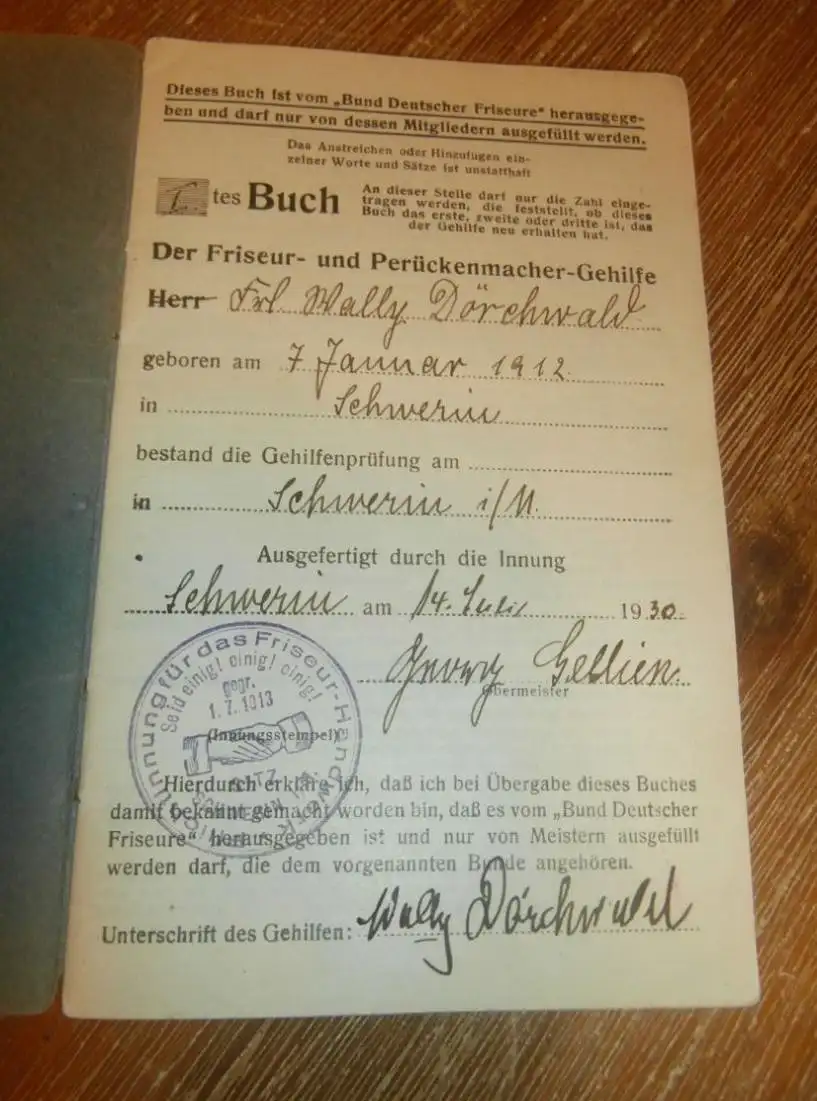 Dieses Buch ist vom „Bund Deutscher Friseure“ herausgege-
ben und darf nur von dessen Mitgliedern ausgefüllt werden.
Das Anstreichen oder Hinzufügen ein-
zelner Worte und Sätze ist unstatthaft
I. tes Buch
An dieser Stelle darf nur die Zahl einge-
tragen werden, die feststellt, ob dieses
Buch das erste, zweite oder dritte ist, das
der Gehilfe neu erhalten hat.
Der Friseur- und Perückenmacher-Gehilfe
Herr Frl Wally Dörchwald
geboren am 7 Januar 1912
in Schwerin
bestand die Gehilfenprüfung am
in Schwerin i/M.
Ausgefertigt durch die Innung
Schwerin am 14. Juli 1930
Georg Gellien
Obermeister
Innung für das Friseur-Handwerk
Seid einig! einig! einig!
gegr.
1.7.1913
(Innungsstempel)
SITZ
SCHWERIN
Hierdurch erkläre ich, daß ich bei Übergabe dieses Buches
damit bekannt gemacht worden bin, daß es vom „Bund Deutscher
Friseure“ herausgegeben ist und nur von Meistern ausgefüllt
werden darf, die dem vorgenannten Bunde angehören.
Unterschrift des Gehilfen: Wally Dörchwald